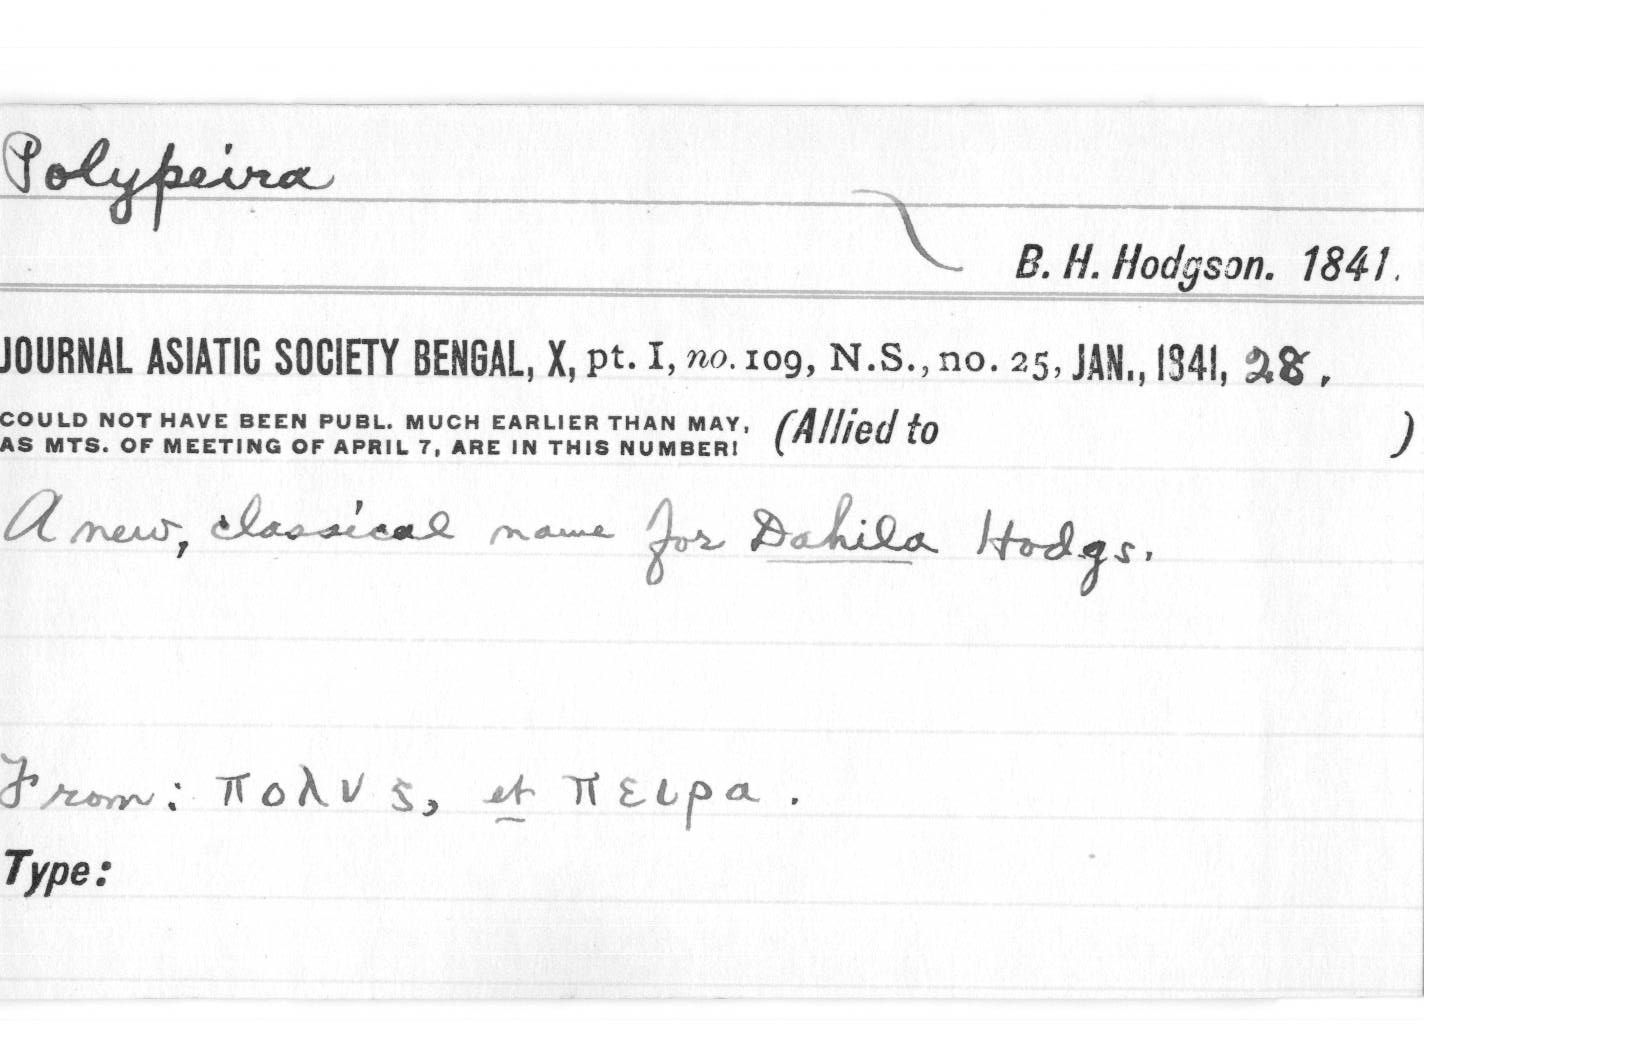 Polypeira
B. H. Hodgson. 1841.
JOURNAL ASIATIC SOCIETY BENGAL, X, pt. I, no. 109, N.S., no. 25, JAN., 1841, 28,
COULD NOT HAVE BEEN PUBL. MUCH EARLIER THAN MAY, (Allied to )
AS MTS. OF MEETING OF APRIL 7, ARE IN THIS NUMBER!
A new, classical name for Dahila Hodgs.
From: πολυς, et πειρα.
Type: